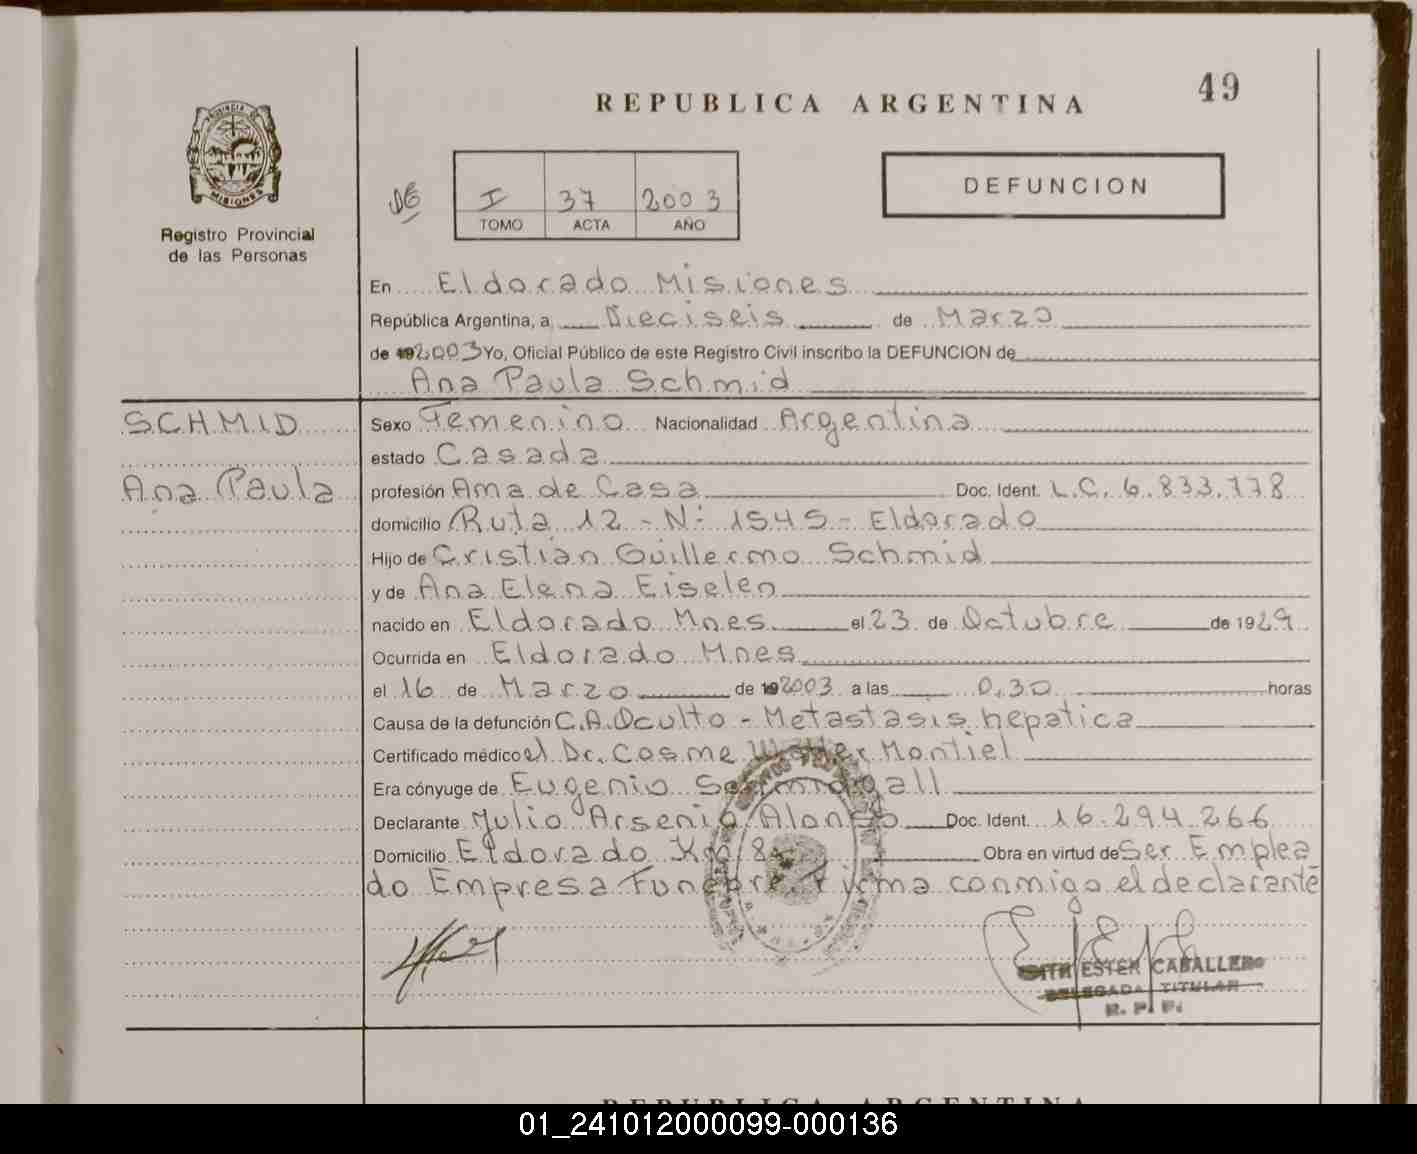 49
REPUBLICA ARGENTINA
PROVINCIA DE
MISIONES
Registro Provincial
de las Personas
DE
I 37 2003
TOMO ACTA AÑO
DEFUNCION
En Eldorado Misiones
República Argentina, a Dieciseis de Marzo
de 2003 Yo, Oficial Público de este Registro Civil inscribo la DEFUNCION de
Ana Paula Schmid
SCHMID
Ana Paula
Sexo Femenino Nacionalidad Argentina
estado Casada
profesión Ama de Casa Doc. Ident. L.C. 6.833.778
domicilio Ruta 12 - N: 1545 - Eldorado
Hijo de Cristian Guillermo Schmid
y de Ana Elena Eiselen
nacido en Eldorado Mnes el 23 de Octubre de 1929
Ocurrida en Eldorado Mnes
el 16 de Marzo de 2003 a las 0,30 horas
Causa de la defunción C.A. Oculto - Metastasis hepatica
Certificado médico el Dr. Cosme Montiel
Era cónyuge de Eugenio
Declarante Julio Arsenio Alonso Doc. Ident. 16.294.266
Domicilio Eldorado Km 8 Obra en virtud de Ser Emplea
do Empresa Funebre Firma conmigo el declarante
ESTER CABALLERO
DELEGADA TITULAR
R. P. P.
REPUBLICA ARGENTINA
01_241012000099-000136